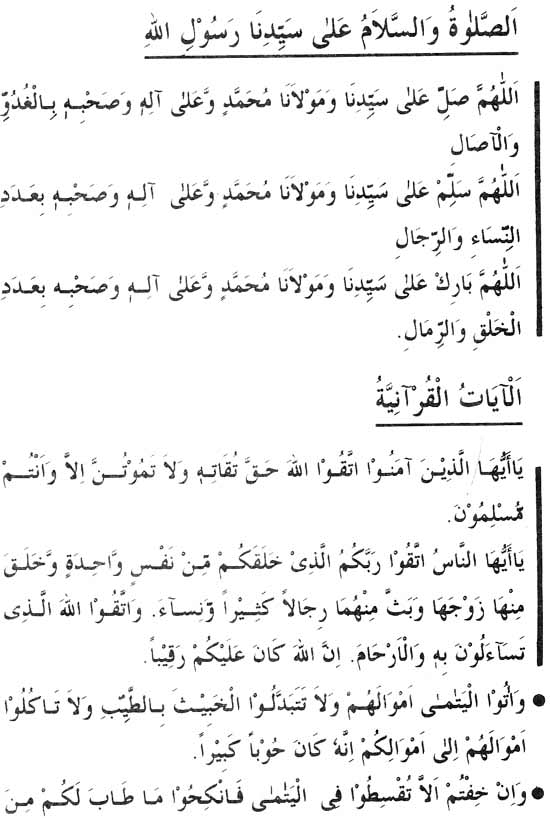 اَلصَّلٰوةُ وَالسَّلاَمُ عَلٰى سَيِّدِنَا رَسُوْلِ اللهِ
اَللّٰهُمَّ صَلِّ عَلٰى سَيِّدِنَا وَمَوْلاَنَا مُحَمَّدٍ وَّعَلٰى آلِهٖ وَصَحْبِهٖ بِالْغُدُوِّ
وَالْآصَالِ
اَللّٰهُمَّ سَلِّمْ عَلٰى سَيِّدِنَا وَمَوْلاَنَا مُحَمَّدٍ وَّعَلٰى آلِهٖ وَصَحْبِهٖ بِعَدَدِ
النِّسَاءِ وَالرِّجَالِ
اَللّٰهُمَّ بَارِكْ عَلٰى سَيِّدِنَا وَمَوْلاَنَا مُحَمَّدٍ وَّعَلٰى آلِهٖ وَصَحْبِهٖ بِعَدَدِ
الْخَلْقِ وَالرِّمَالِ.
اَلْآيَاتُ الْقُرْآنِيَّةُ
يَاأَيُّهَا الَّذِيْنَ آمَنُوْا اتَّقُوْا اللهَ حَقَّ تُقَاتِهٖ وَلاَ تَمُوْتُنَّ اِلاَّ وَاَنْتُمْ
مُّسْلِمُوْنَ.
يَاأَيُّهَا النَّاسُ اتَّقُوْا رَبَّكُمُ الَّذِىْ خَلَقَكُمْ مِّنْ نَفْسٍ وَّاحِدَةٍ وَّخَلَقَ
مِنْهَا زَوْجَهَا وَبَثَّ مِنْهُمَا رِجَالاً كَثِيْراً وَّنِسآءً. وَاتَّقُوْا اللهَ الَّذِى
تَسآءَلُوْنَ بِهٖ وَالْاَرْحَامَ. اِنَّ اللهَ كَانَ عَلَيْكُمْ رَقِيْباً.
● وَاٰتُوْا الْيَتٰمٰى اَمْوَالَهُمْ وَلاَ تَتَبَدَّلُوْا الْخَبِيْثَ بِالطَّيِّبِ وَلاَ تَاكُلُوْا
اَمْوَالَهُمْ اِلٰى اَمْوَالِكُمْ اِنَّهٗ كَانَ حُوْباً كَبِيْراً.
● وَاِنْ خِفْتُمْ اَلاَّ تُقْسِطُوْا فِى الْيَتٰمٰى فَانْكِحُوْا مَا طَابَ لَكُمْ مِنَ